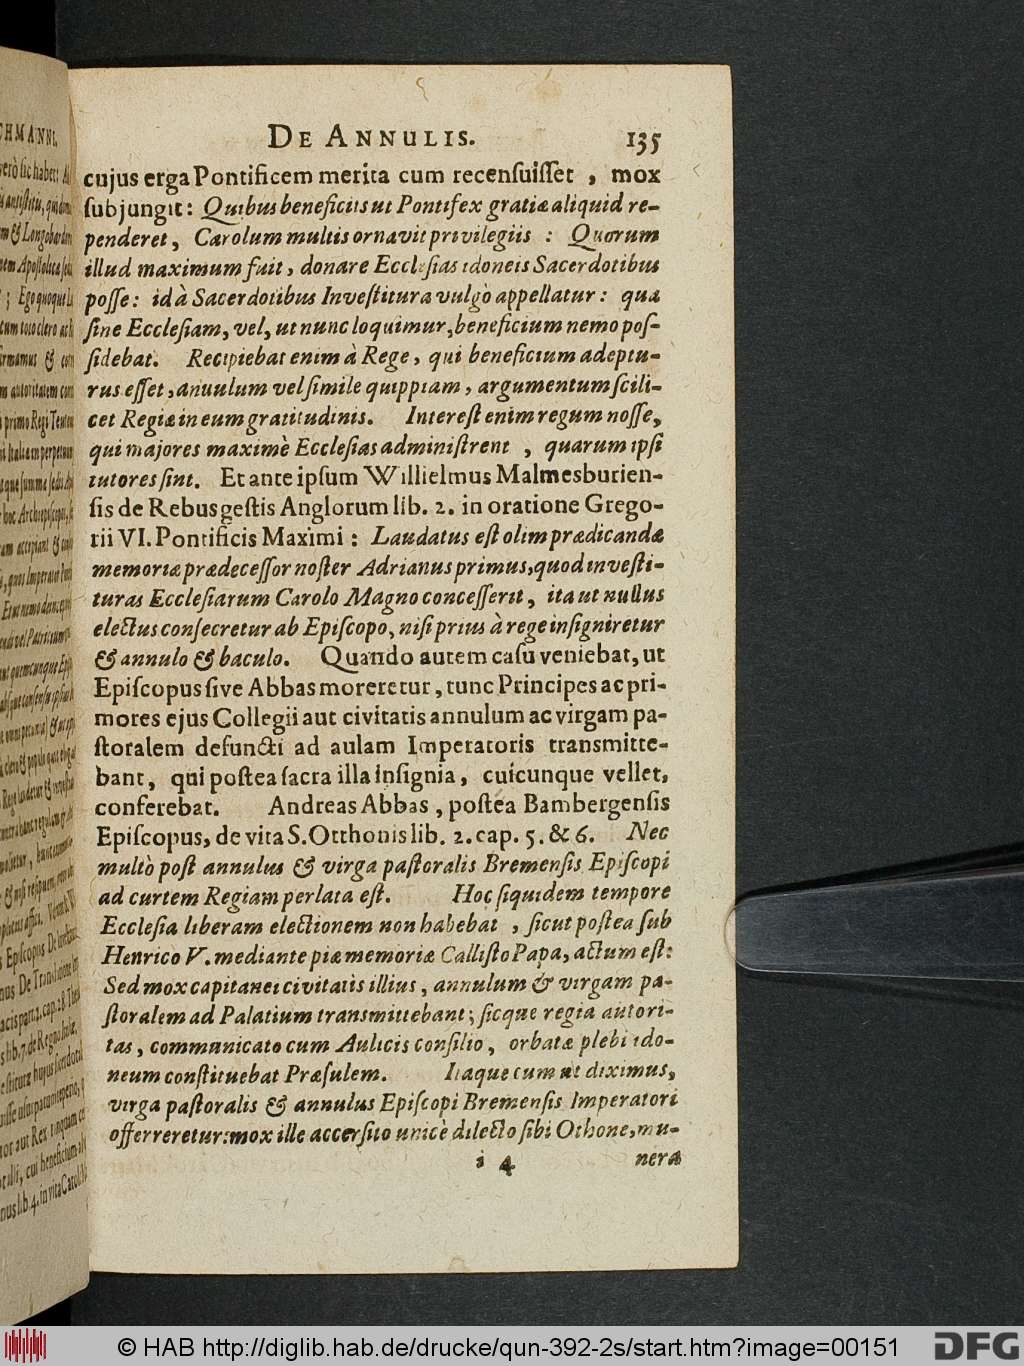 DE ANNULIS. 135
cujus erga Pontificem merita cum recensuisset, mox
subjungit: Quibus beneficiis ut Pontifex gratiæ aliquid re-
penderet, Carolum multis ornavit privilegiis: Quorum
illud maximum fuit, donare Ecclesias idoneis Sacerdotibus
posse: id à Sacerdotibus Investitura vulgò appellatur: qua
sine Ecclesiam, vel, ut nunc loquimur, beneficium nemo pos-
sidebat. Recipiebat enim à Rege, qui beneficium adeptu-
rus esset, annulum vel simile quippiam, argumentum scili-
cet Regiæ in eum gratitudinis. Interest enim regum nosse,
qui majores maximè Ecclesias administrent, quarum ipsi
tutores sint. Et ante ipsum Willielmus Malmesburien-
sis de Rebus gestis Anglorum lib. 2. in oratione Grego-
rii VI. Pontificis Maximi: Laudatus est olim prædicandæ
memoriæ prædecessor noster Adrianus primus, quod investi-
turas Ecclesiarum Carolo Magno concesserit, ita ut nullus
electus consecretur ab Episcopo, nisi prius à rege insigniretur
& annulo & baculo. Quando autem casu veniebat, ut
Episcopus sive Abbas moreretur, tunc Principes ac pri-
mores ejus Collegii aut civitatis annulum ac virgam pa-
storalem defuncti ad aulam Imperatoris transmitte-
bant, qui postea sacra illa insignia, cuicunque vellet,
conferebat. Andreas Abbas, postea Bambergensis
Episcopus, de vita S. Otthonis lib. 2. cap. 5. & 6. Nec
multò post annulus & virga pastoralis Bremensis Episcopi
ad curtem Regiam perlata est. Hoc siquidem tempore
Ecclesia liberam electionem non habebat, sicut postea sub
Henrico V. mediante piæ memoriæ Callisto Papa, actum est:
Sed mox capitanei civitatis illius, annulum & virgam pa-
storalem ad Palatium transmittebant; sicque regia autori-
tas, communicato cum Aulicis consilio, orbatæ plebi ido-
neum constituebat Præsulem. Itaque cum ut diximus,
virga pastoralis & annulus Episcopi Bremensis Imperatori
offerreretur: mox ille accersito unicè dilecto sibi Othone, mu-
i 4 nera
© HAB http://diglib.hab.de/drucke/qun-392-2s/start.htm?image=00151
DFG